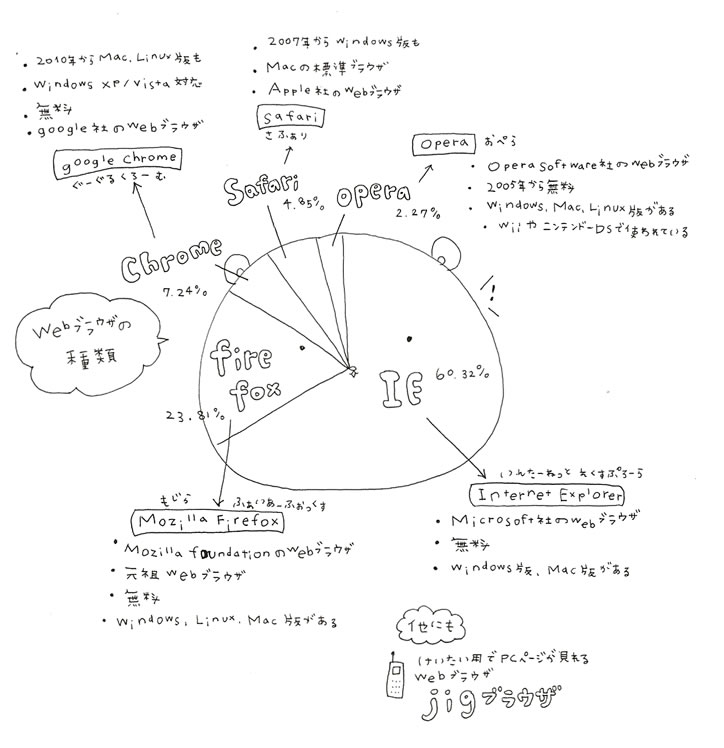 ・2010年からMac、Linux版も
・Windows XP/Vista対応
・無料
・google社のWebブラウザ
google chrome
ぐーぐるくろーむ
・2007年からwindows版も
・Macの標準ブラウザ
・Apple社のWebブラウザ
Safari
さふぁり
Opera おぺら
・Opera Software社のWebブラウザ
・2005年から無料
・Windows、Mac、Linux版がある
・WiiやニンテンドーDSで使われている
Safari
4.85%
opera
2.27%
Chrome
7.24%
Webブラウザの
種類
fire
fox
23.81%
IE
60.32%
!
いんたーねっと えくすぷろーら
Internet Explorer
・Microsoft社のWebブラウザ
・無料
・Windows版、Mac版がある
もじら ふぁいあーふぉっくす
Mozilla Firefox
・Mozilla foundationのWebブラウザ
・元祖Webブラウザ
・無料
・Windows、Linux、Mac版がある
他にも
けいたい用でPCページが見れる
Webブラウザ
jigブラウザ